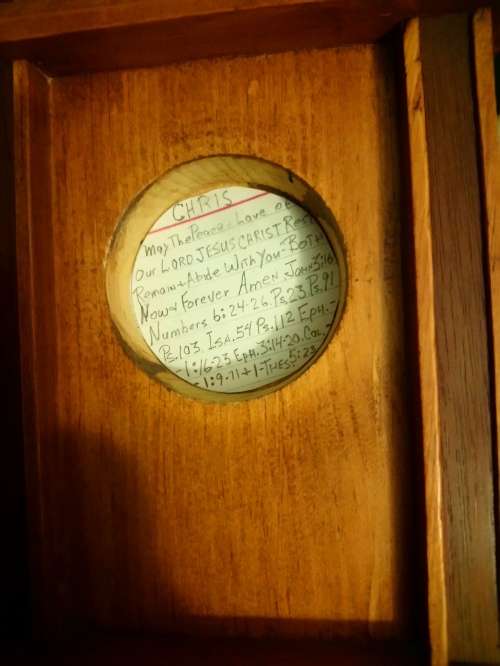 CHRIS
May The Peace, Love of
Our LORD JESUS CHRIST Rest
Remain + Abide With You BOTH
Now & Forever Amen JOHN 3:16
Numbers 6:24-26. Ps.23. Ps.91
Ps.103. ISA.54 Ps.112 EPH.-
-1:16-23 EPH.3:14-20. COL.-
-1:9-11 + 1-THES. 5:23